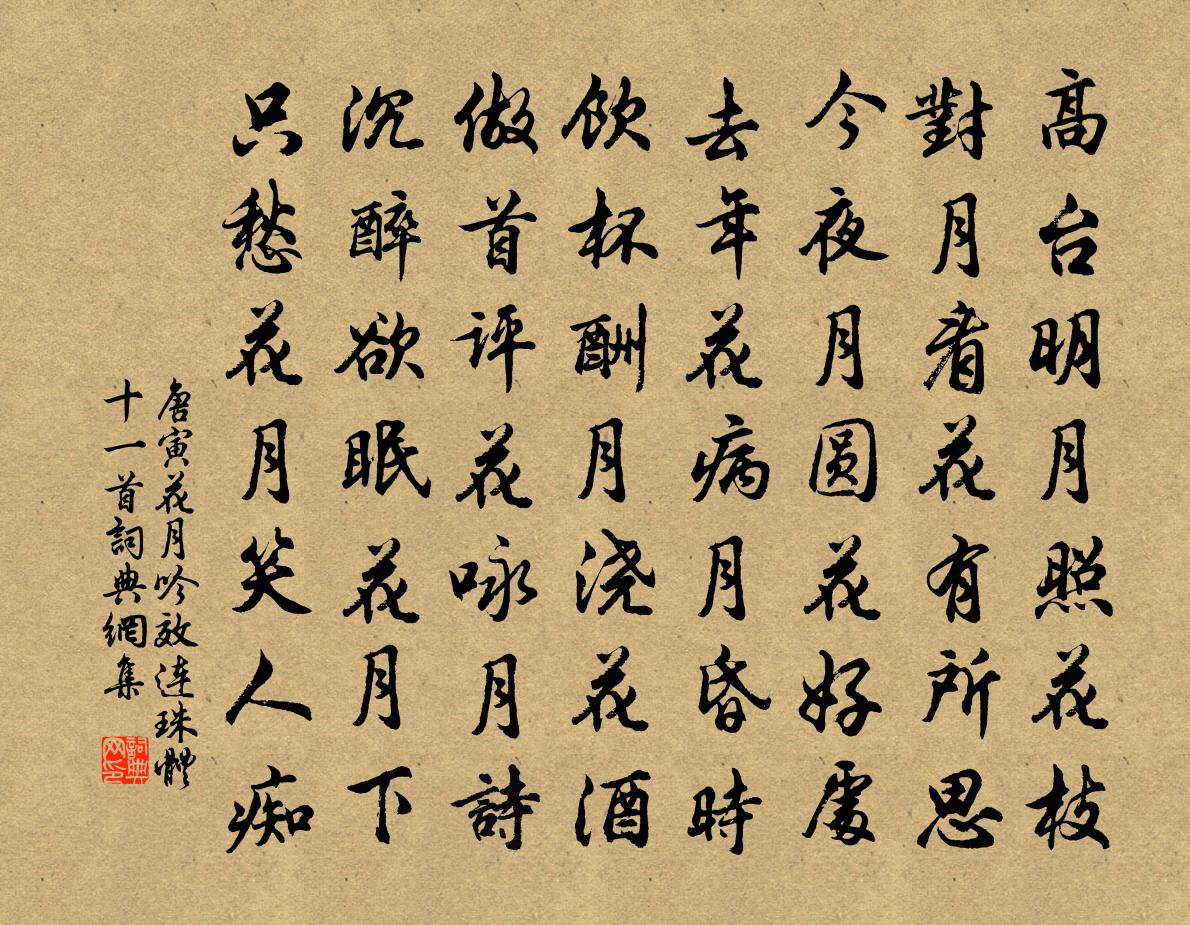 高台明月照花枝
對月看花有所思
今夜月圆花好處
去年花病月昏時
飲杯酬月浇花酒
做首评花咏月詩
沉醉欲眠花月下
只愁花月笑人痴
唐寅花月吟效连珠體
十一首詞典網集
詞典
网印